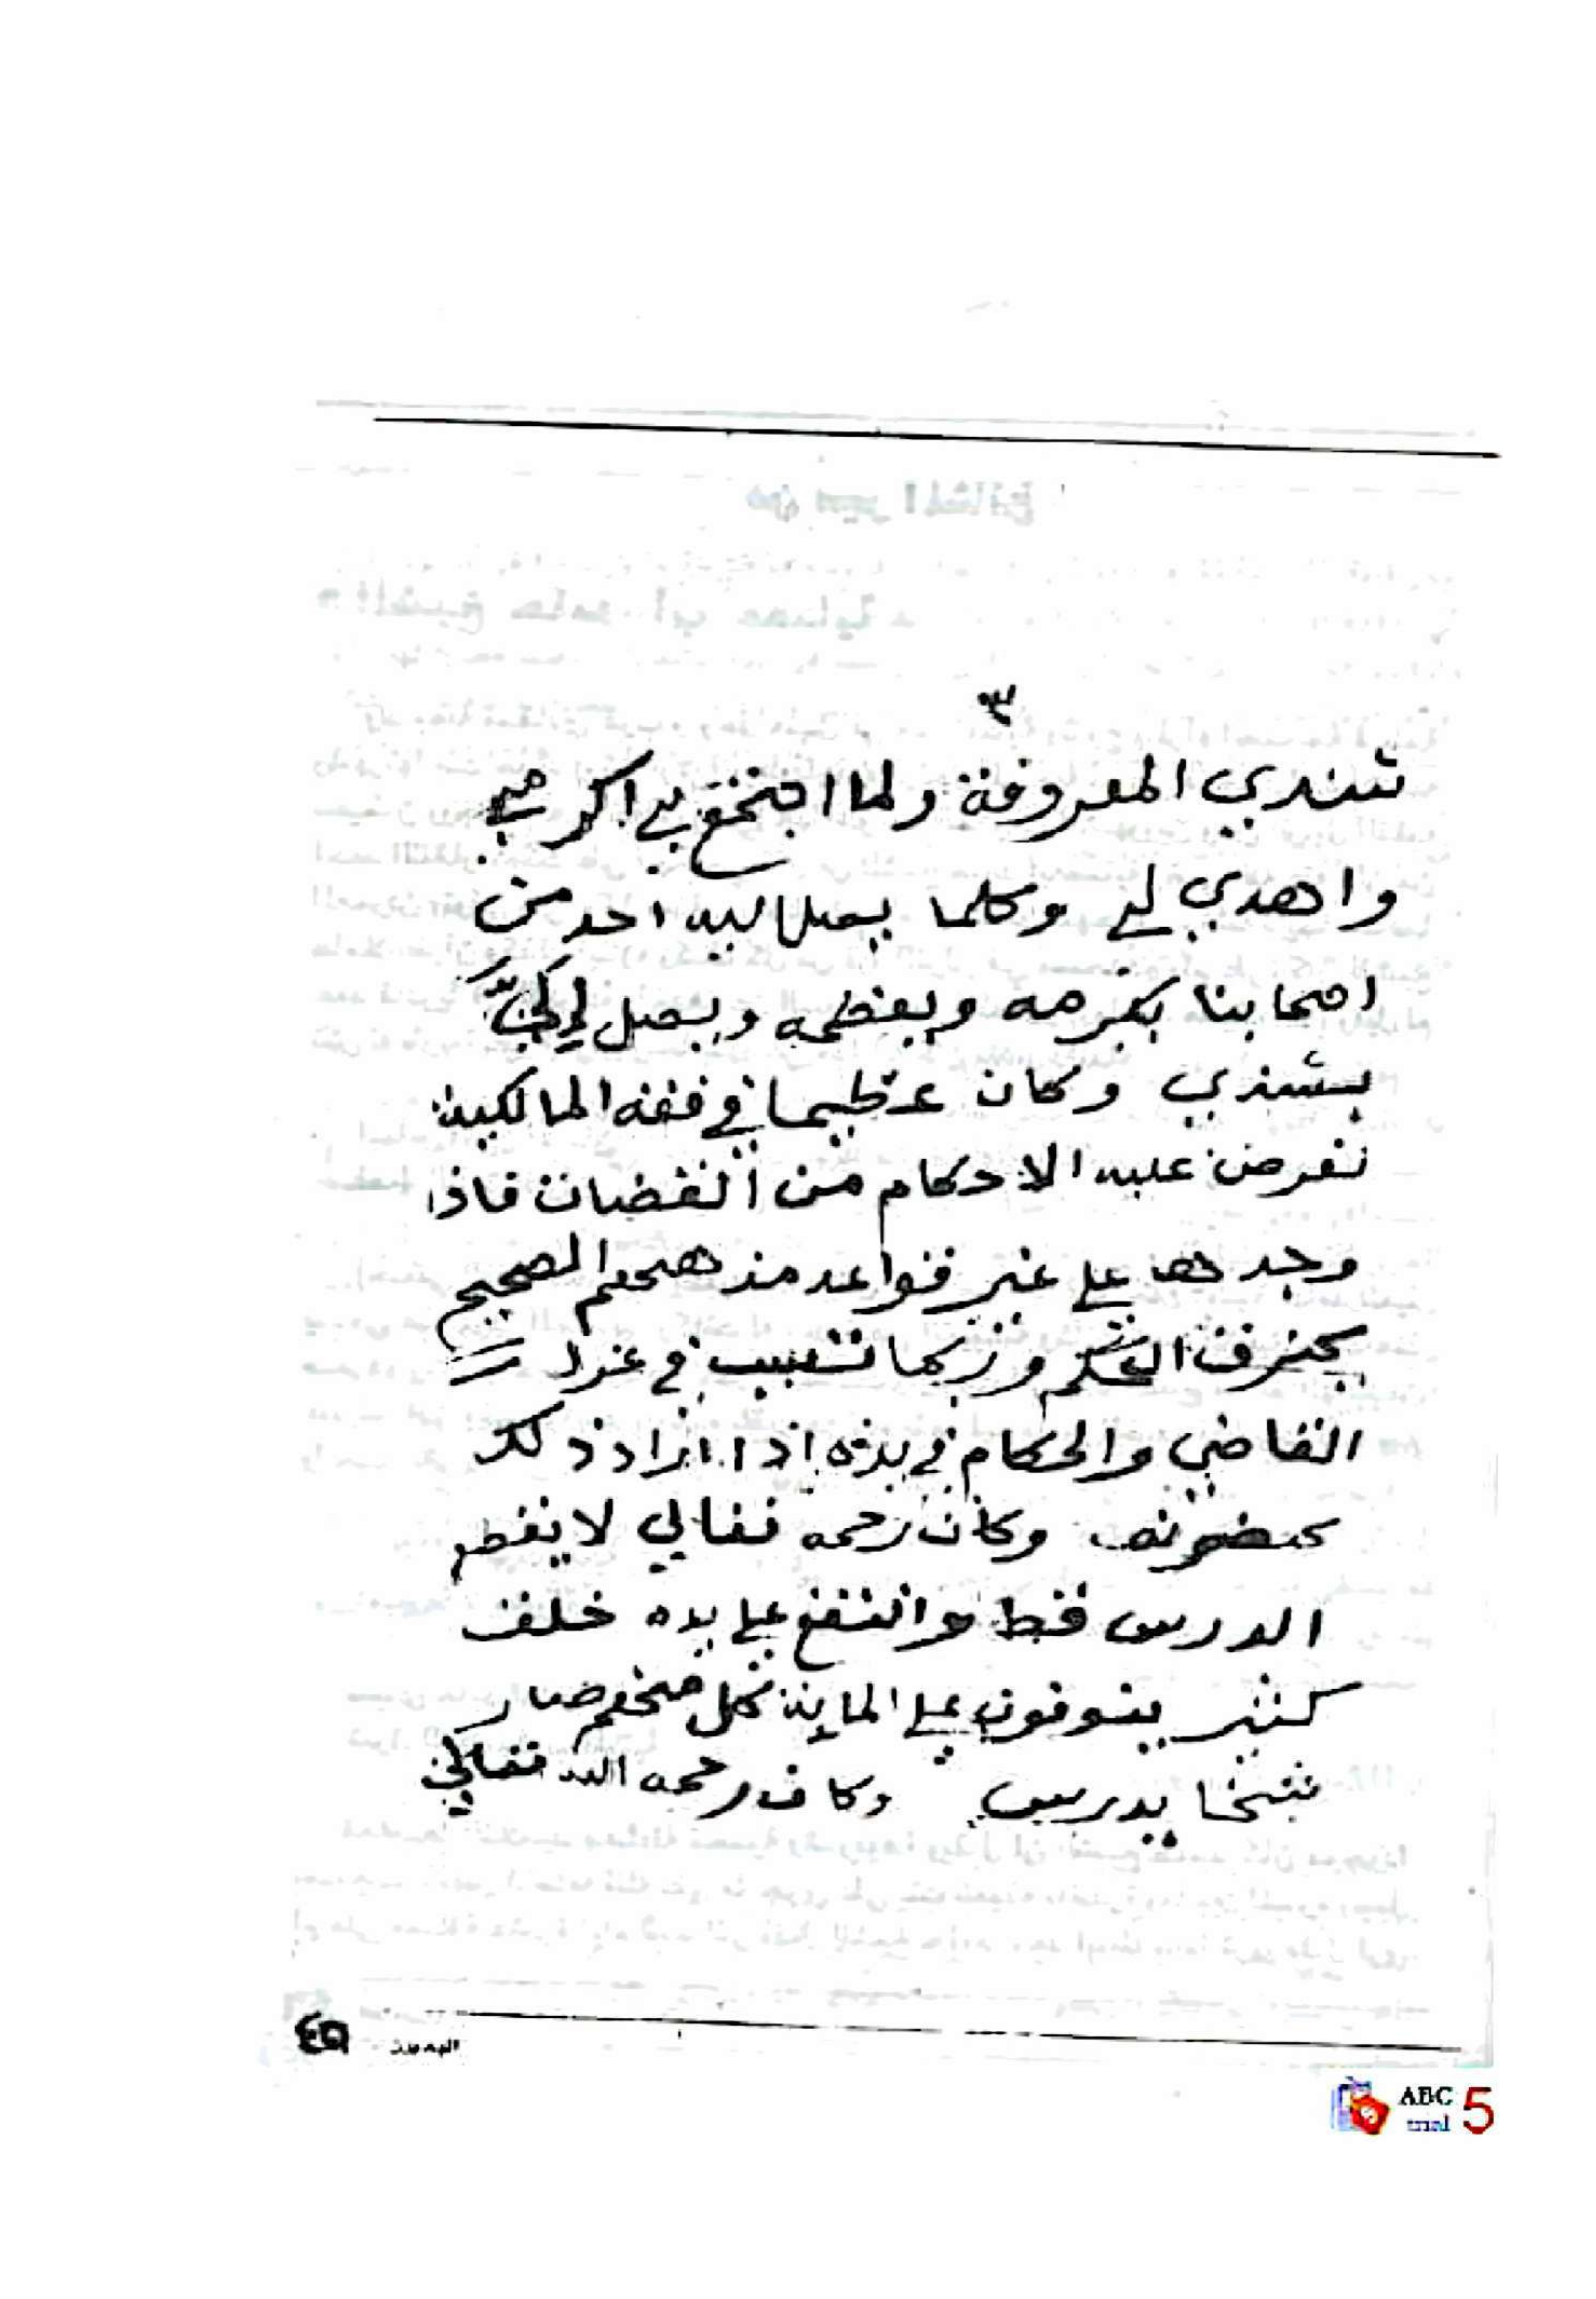 ٣
شندي المعروفة ولما اجتمع بي اكرمني
واهدي لي وكلما يصل اليه احد من
اصحابنا يكرمه ويعظمه ويصل لي
بشندي وكان عظيما في فقه المالكية
تعرض عليه الاحكام من القضات فاذا
وجدها علي غير قواعد مذهبهم الصحيح
يحرف الحكم وربما تسبب في عزل
القاضي والحكام في يده اذا اراد ذلك
وكان رحمه تعالي لا يقطع
الدرس قط وانتفع علي يده خلق
كثير ينوفون علي الماية كل منهم صار
شيخا يدرس وكان رحمه الله تعالي
٤٥
ABC
trial 5